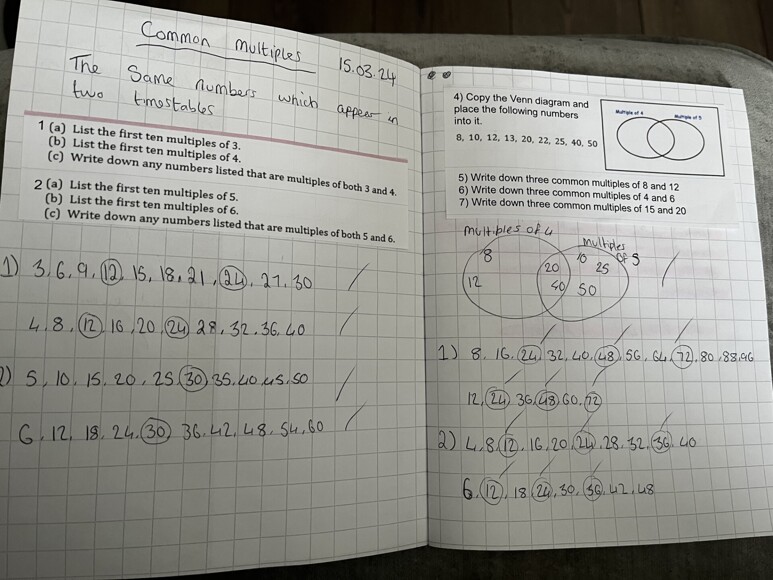 Common multiples
15.03.24
The Same numbers which appear in
two timestables
1 (a) List the first ten multiples of 3.
(b) List the first ten multiples of 4.
(c) Write down any numbers listed that are multiples of both 3 and 4.
2 (a) List the first ten multiples of 5.
(b) List the first ten multiples of 6.
(c) Write down any numbers listed that are multiples of both 5 and 6.
1) 3, 6, 9, 12, 15, 18, 21, 24, 27, 30
4, 8, 12, 16, 20, 24, 28, 32, 36, 40
2) 5, 10, 15, 20, 25, 30, 35, 40, 45, 50
6, 12, 18, 24, 30, 36, 42, 48, 54, 60
4) Copy the Venn diagram and
place the following numbers
into it.
8, 10, 12, 13, 20, 22, 25, 40, 50
Multiple of 4
Multiple of 5
5) Write down three common multiples of 8 and 12
6) Write down three common multiples of 4 and 6
7) Write down three common multiples of 15 and 20
multiples of 4
multiples
of 5
8
10
25
20
12
40
50
1) 8, 16, 24, 32, 40, 48, 56, 64, 72, 80, 88, 96
12, 24, 36, 48, 60, 72
2) 4, 8, 12, 16, 20, 24, 28, 32, 36, 40
6, 12, 18, 24, 30, 36, 42, 48